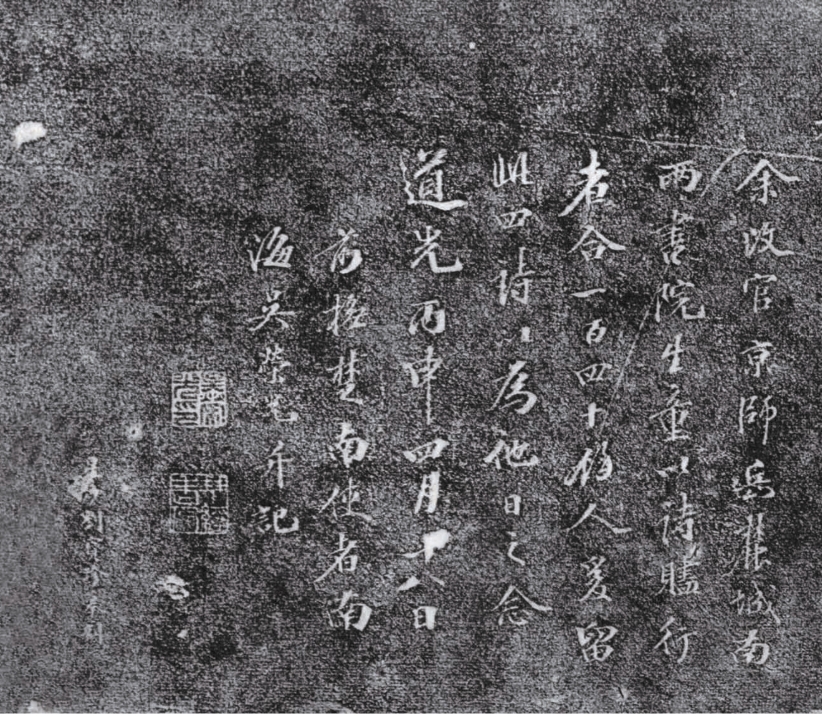 余改官京師岳麓城南
兩書院生童以詩贐行
者合一百四十餘人爰留
此四詩以為他日之念
道光丙申四月十八日
前撫楚南使者南
海吳榮光并記